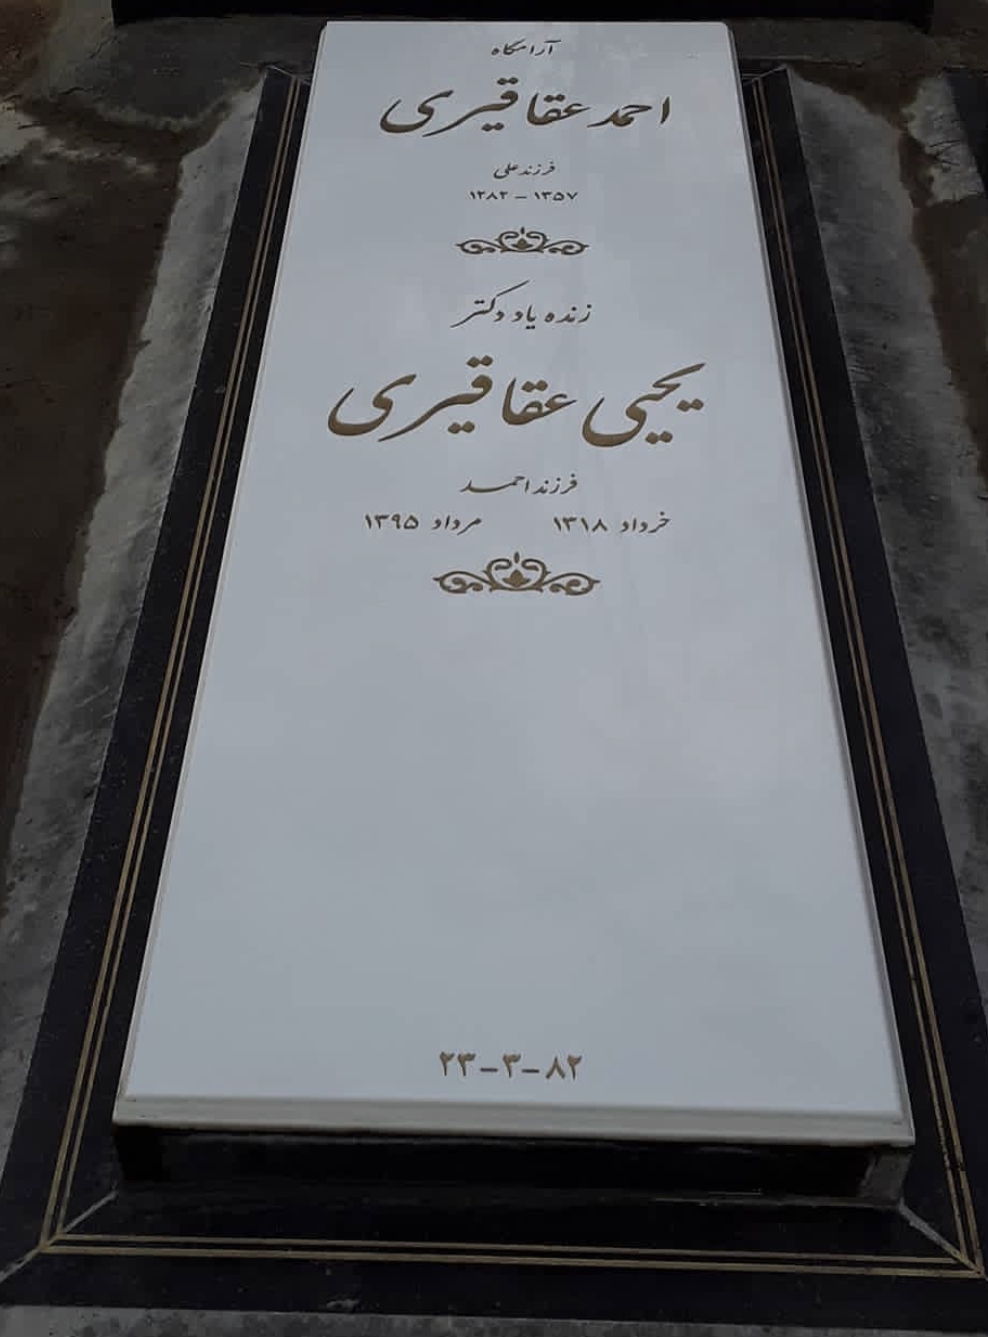 آرامگاه
احمد عقاقیری
فرزند علی
۱۲۸۲ - ۱۳۵۷
زنده یاد دکتر
یحیی عقاقیری
فرزند احمد
خرداد ۱۳۱۸ مرداد ۱۳۹۵
۲۳-۳-۸۲